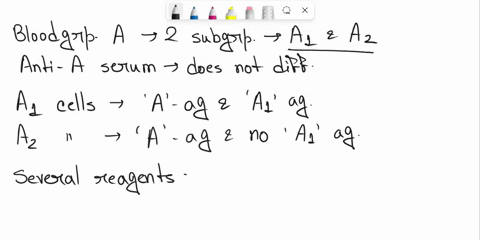 Bloodgrp. A → 2 subgrp. → A₁ & A₂
Anti-A serum → does not diff.
A₁ cells → 'A'-ag & 'A₁' ag.
A₂ " → 'A'-ag & no 'A₁' ag.
Several reagents.